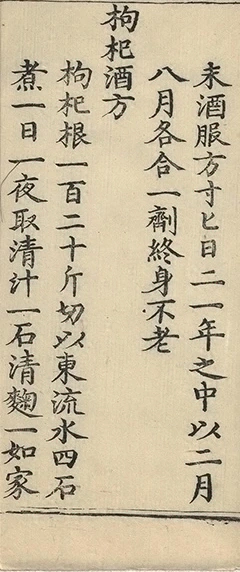 末酒服方寸匕日二一年之中以二月
八月各合一劑終身不老
枸杞酒方
枸杞根一百二十斤切以東流水四石
煮一日一夜取清汁一石清麴一如家